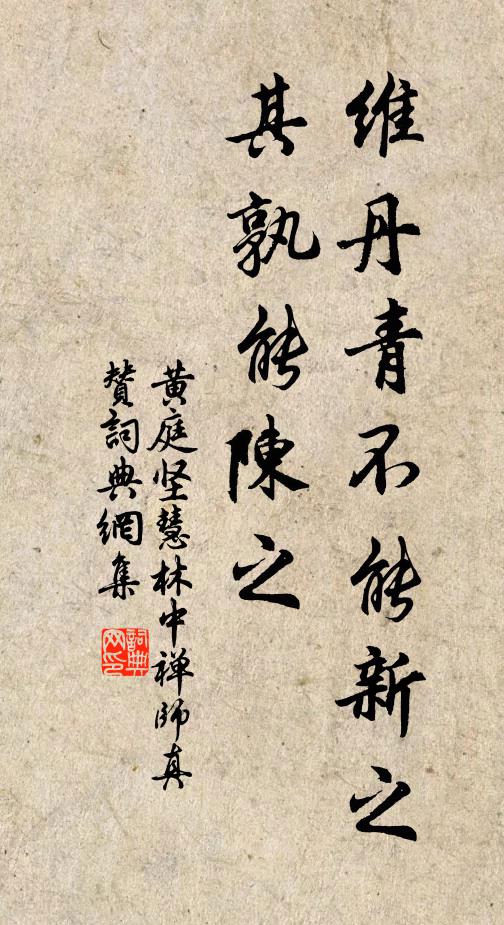 維丹青不能新之
其孰能陳之
黄庭坚慧林中禅師真
賛詞典網集
詞典
网印